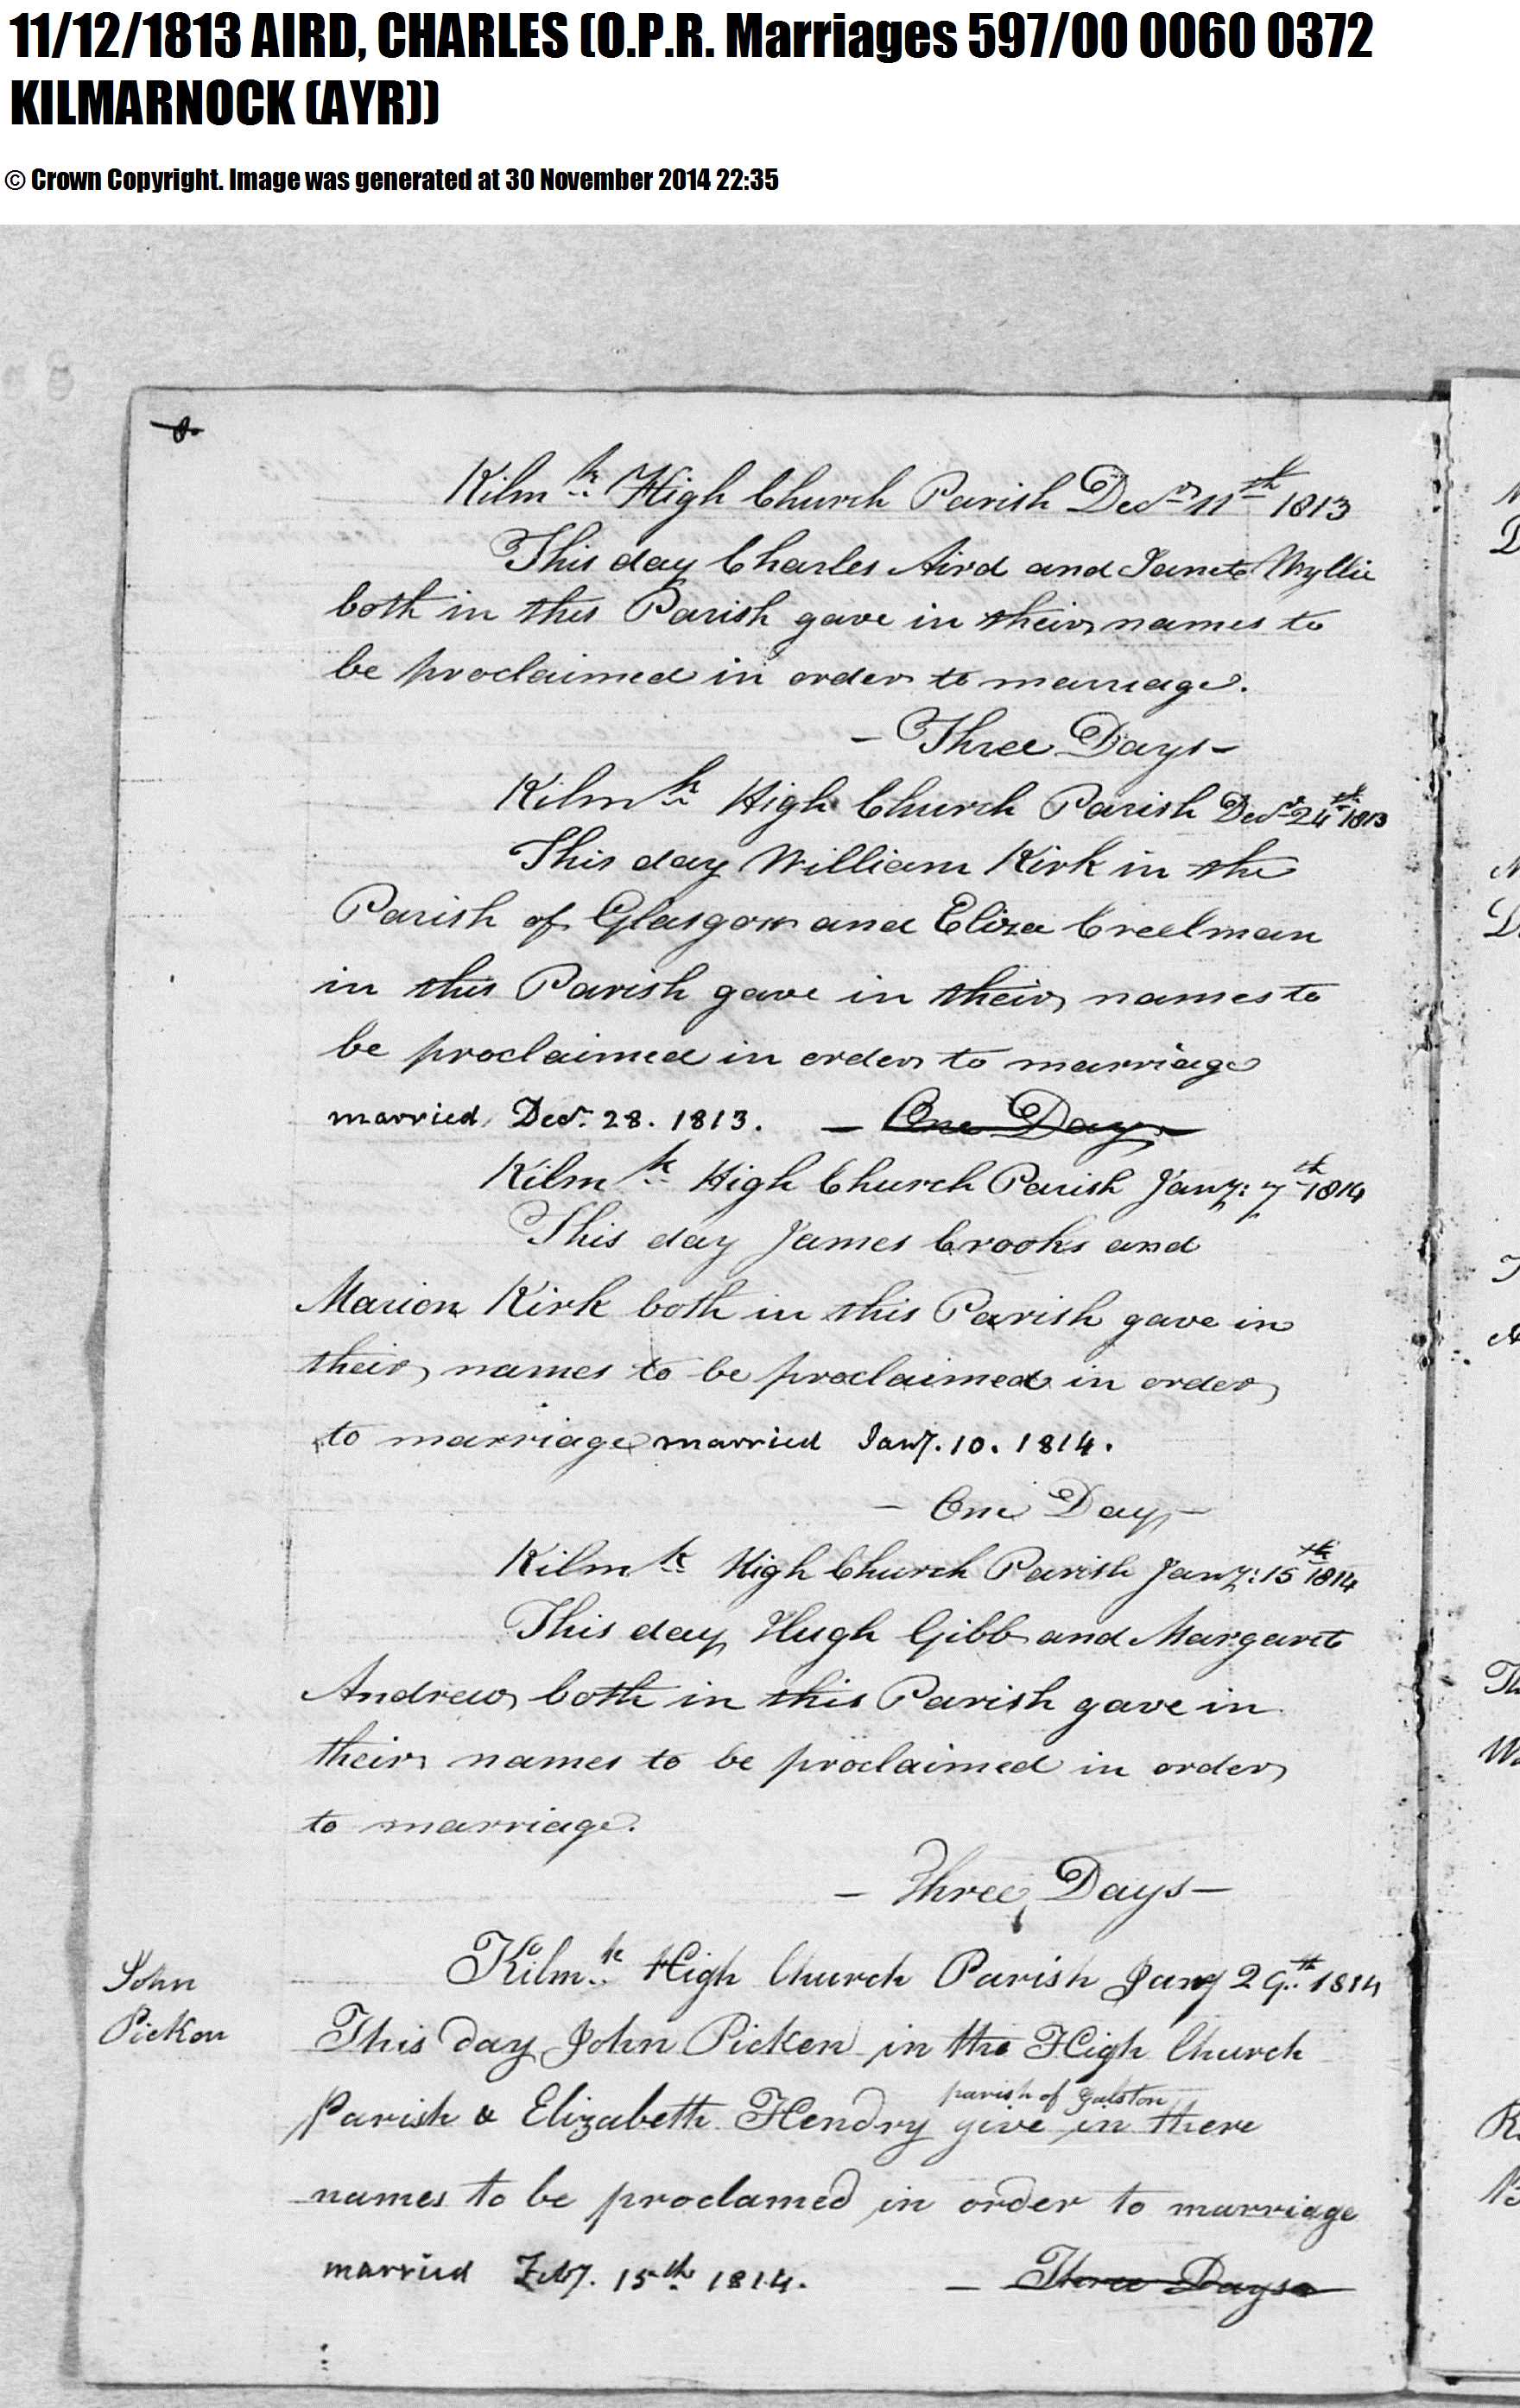 11/12/1813 AIRD, CHARLES (O.P.R. Marriages 597/00 0060 0372
KILMARNOCK (AYR))
© Crown Copyright. Image was generated at 30 November 2014 22:35
Kilmk High Church Parish Decr 11th 1813
This day Charles Aird and Janet Wyllie
both in this Parish gave in their names to
be proclaimed in order to marriage.
- Three Days -
Kilmk High Church Parish Decr 24th 1813
This day William Kirk in the
Parish of Glasgow and Eliza Creelman
in this Parish gave in their names to
be proclaimed in order to marriage
married Decr. 28. 1813. - One Day -
Kilmk High Church Parish Jany: 7th 1814
This day James Crooks and
Marion Kirk both in this Parish gave in
their names to be proclaimed in order
to marriage married Jany. 10. 1814.
- One Day -
Kilmk High Church Parish Jany: 15th 1814
This day Hugh Gibb and Margaret
Andrew both in this Parish gave in
their names to be proclaimed in order
to marriage.
- Three Days -
John
Picken
Kilmk High Church Parish Jany 29th 1814
This day John Picken in the High Church
parish of Galston
Parish & Elizabeth Hendry give in there
names to be proclamed in order to marriage
married Feby. 15th 1814. - Three Days -